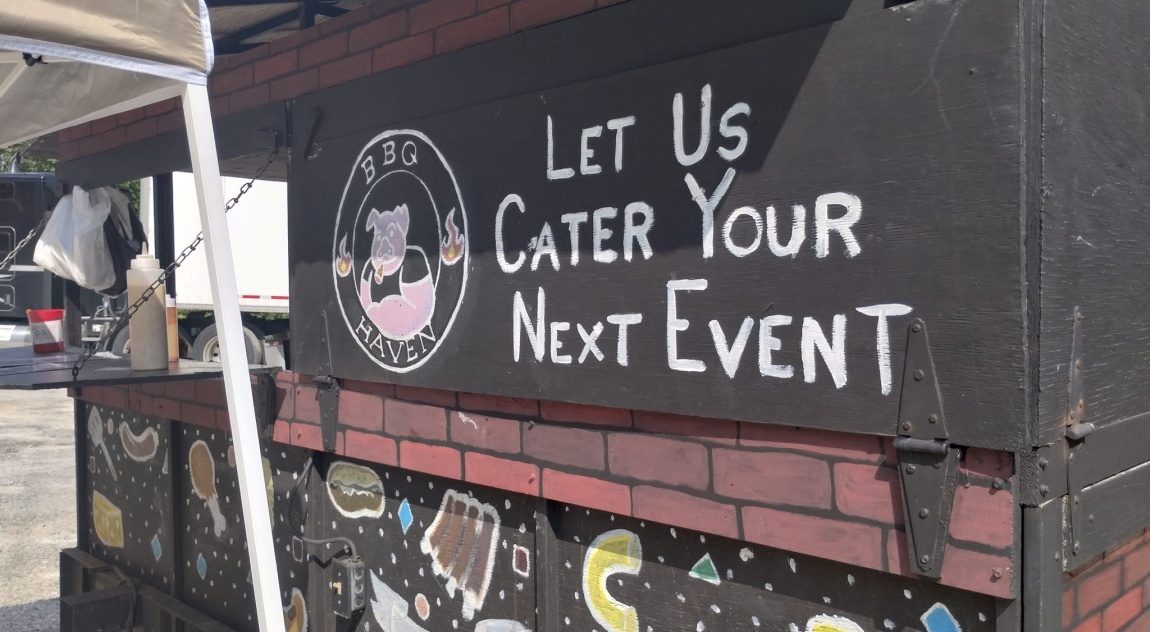 BBQ
HAVEN
LET US
CATER YOUR
NEXT EVENT